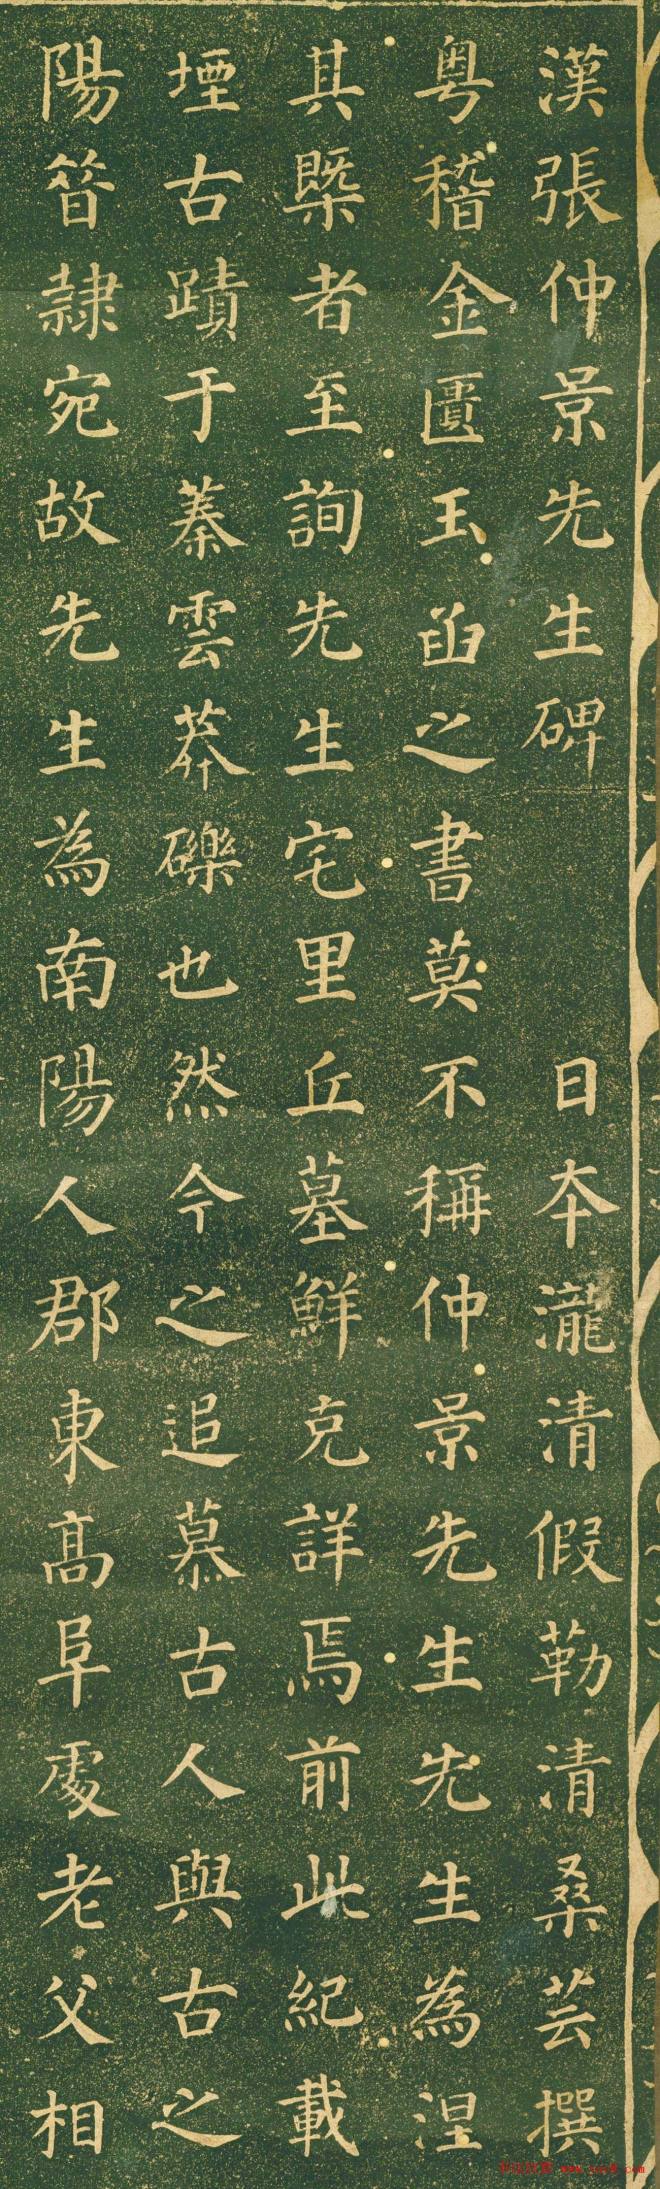 漢張仲景先生碑 日本瀧清假勒清桑芸撰
粵稽金匱玉函之書莫不稱仲景先生先生為涅
其槩者至詢先生宅里丘墓鮮克詳焉前此紀載
堙古蹟于蓁雲莽礫也然今之追慕古人與古之
陽晉隸宛故先生為南陽人郡東高阜處老父相